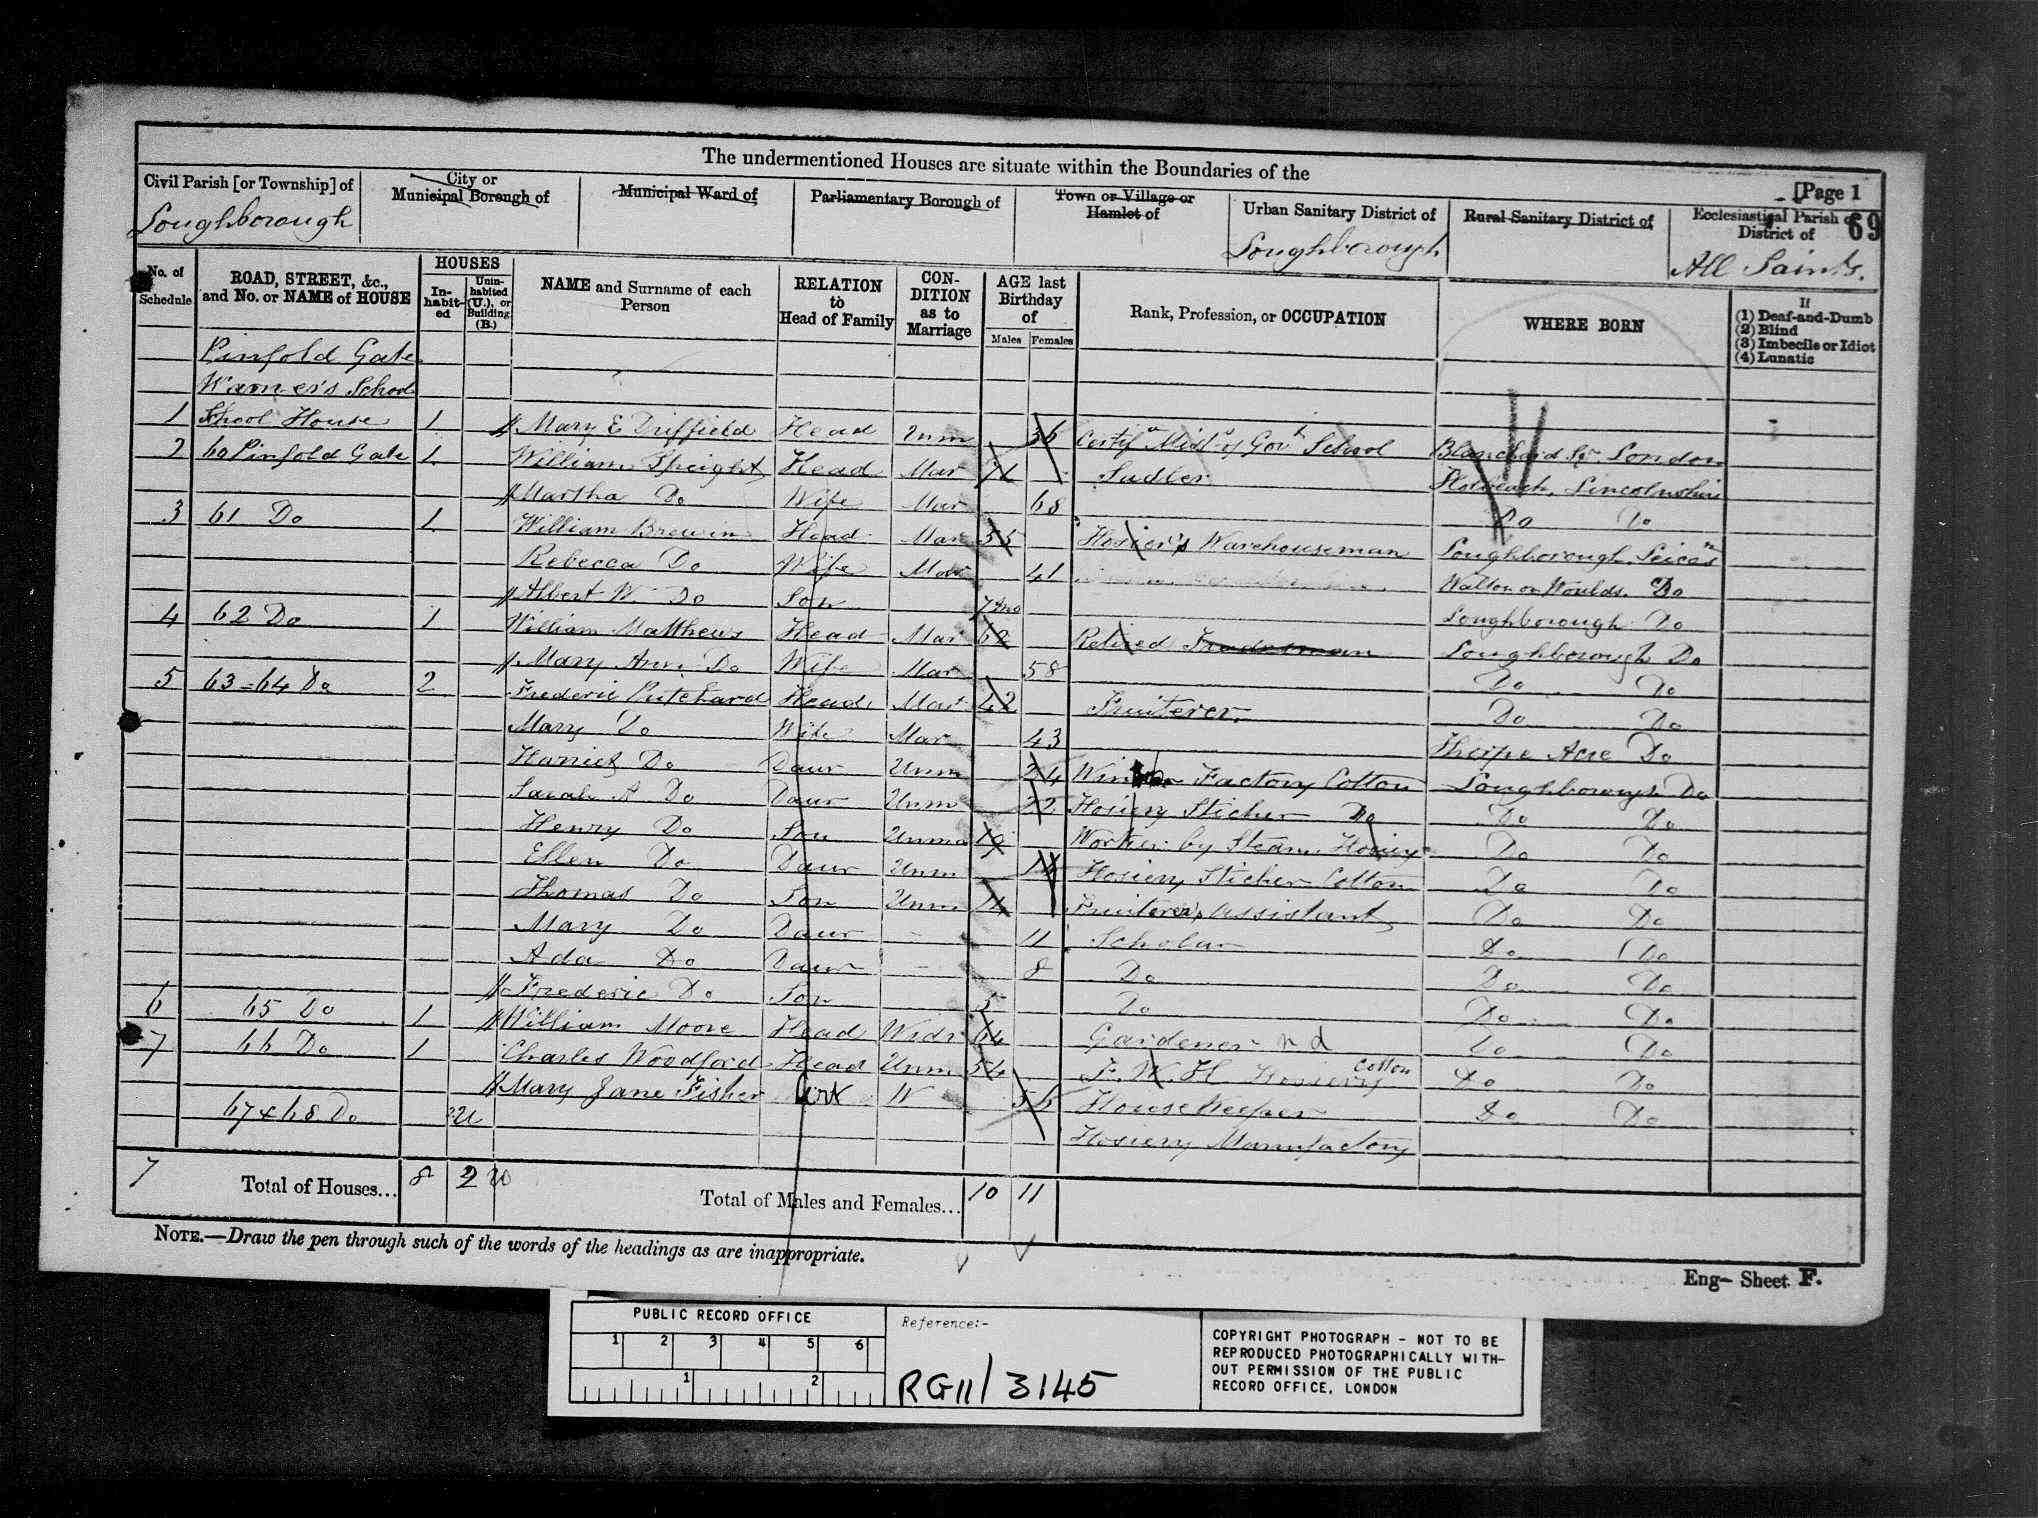 The undermentioned Houses are situate within the Boundaries of the
[Page 1
69
Civil Parish [or Township] of
Loughborough
City or Municipal Borough of
Municipal Ward of
Parliamentary Borough of
Town or Village or Hamlet of
Urban Sanitary District of
Loughborough
Rural Sanitary District of
Ecclesiastical Parish or District of
All Saints.
No. of Schedule
ROAD, STREET, &c., and No. or NAME of HOUSE
HOUSES
In-habit-ed
Unin-habited (U.), or Building (B.)
NAME and Surname of each Person
RELATION to Head of Family
CON-DITION as to Marriage
AGE last Birthday of
Males
Females
Rank, Profession, or OCCUPATION
WHERE BORN
If
(1) Deaf-and-Dumb
(2) Blind
(3) Imbecile or Idiot
(4) Lunatic
Pinfold Gate
Warner's School
1 School House 1 Mary E Driffield Head Unm 36 Certif Mist of Govt School Blanchard Sq London
2 60 Pinfold Gate 1 William Speight Head Mar 71 Sadler Holbeach, Lincolnshire
Martha Do Wife Mar 68 Do Do
3 61 Do 1 William Brewin Head Mar 35 Hosier's Warehouseman Loughborough Leics
Rebecca Do Wife Mar 41 Walton on Woulds. Do
Albert W Do Son 7mo Loughborough Do
4 62 Do 1 William Matthews Head Mar 62 Retired Tradesman Loughborough Do
Mary Ann Do Wife Mar 58 Do Do
5 63-64 Do 2 Frederic Pritchard Head Mar 42 Fruiterer. Do Do
Mary Do Wife Mar 43 Thorpe Acre Do
Harriet Do Daur Unm 24 Factory Cotton Loughborough Do
Sarah A Do Daur Unm 22 Hosiery Sticher Do Do Do
Henry Do Son Unm 19 Worker by Steam Hosiery Do Do
Ellen Do Daur Unm Hosiery Sticher Cotton Do Do
Thomas Do Son Unm 14 Fruiterer's Assistant Do Do
Mary Do Daur - 11 Scholar Do Do
Ada Do Daur - 8 Do Do Do
Frederic Do Son 5 Do Do Do
6 65 Do 1 William Moore Head Widr 64 Gardener n d Do Do
7 66 Do 1 Charles Woodford Head Unm 54 F. W. K Hosiery Cotton Do Do
Mary Jane Fisher W 36 House Keeper Do Do
67 & 68 Do 2U Hosiery Manufactory
7 Total of Houses... 8 2 U Total of Males and Females... 10 11
NOTE.—Draw the pen through such of the words of the headings as are inappropriate.
Eng— Sheet F.
PUBLIC RECORD OFFICE
1 2 3 4 5 6
1 2
Reference:-
RG 11/3145
COPYRIGHT PHOTOGRAPH - NOT TO BE
REPRODUCED PHOTOGRAPHICALLY WITH-
OUT PERMISSION OF THE PUBLIC
RECORD OFFICE, LONDON